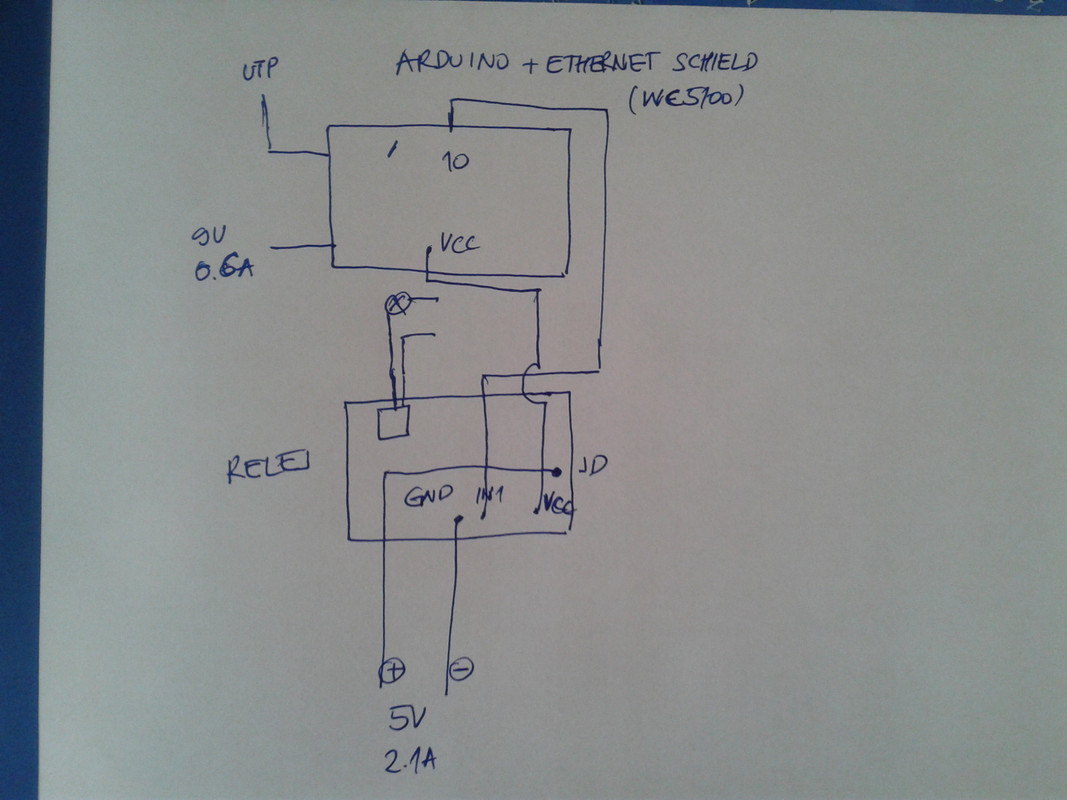 UTP
ARDUINO + ETHERNET SCHIELD
(WE5100)
10
9V
0.6A
VCC
RELEJ
JD
GND IN1 VCC
+ -
5V
2.1A